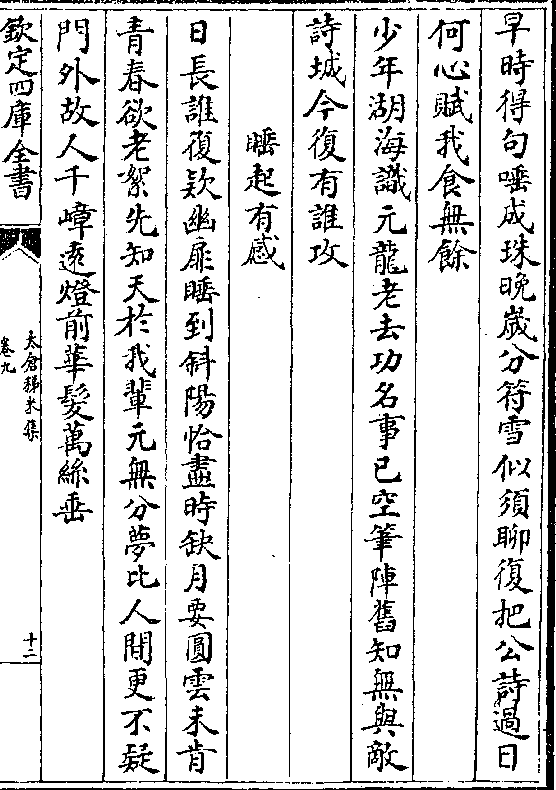 早時得句唾成珠晚歲分符雪似須聊復把公詩過日
何心賦我食無餘
少年湖海識元龍老去功名事已空筆陣舊知無與敵
詩城今復有誰攻
睡起有感
日長誰復欵幽扉睡到斜陽恰盡時缺月要圓雲未肯
青春欲老絮先知天於我輩元無分夢比人間更不疑
門外故人千嶂逺燈前華髮萬絲垂
欽定四庫全書
太倉稊米集
卷九
十二